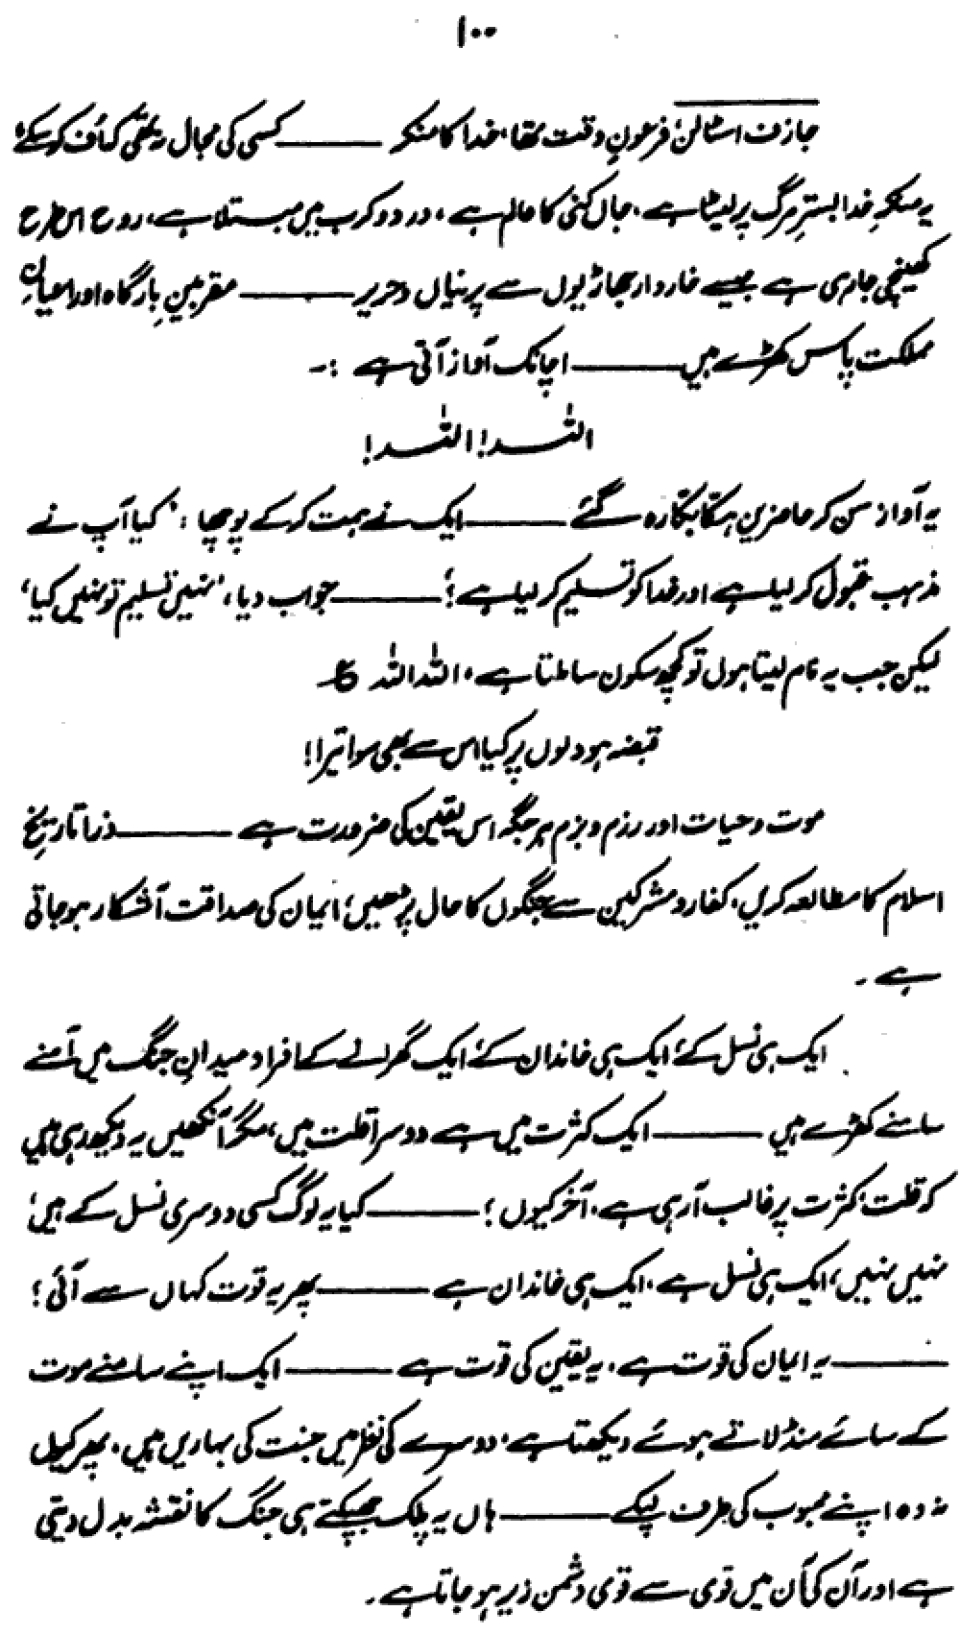 ۱۰۰
جازف اسٹالن، فرعونِ وقت تھا، خدا کا منکر ——— کسی کی مجال نہ تھی کہ اُف کر سکے،
یہ منکرِ خدا بسترِ مرگ پر لیٹا ہے، جاں کنی کا عالم ہے، درد و کرب میں مبتلا ہے، روح اس طرح
کھینچی جا رہی ہے جیسے خاردار جھاڑیوں سے پرنیاں و حریر ——— مقربینِ بارگاہ اور اعیانِ
مملکت پاس کھڑے ہیں ——— اچانک آواز آتی ہے :۔
اللہ! اللہ!
یہ آواز سن کر حاضرین ہکّا بکّا رہ گئے ——— ایک نے ہمت کر کے پوچھا : ‘کیا آپ نے
مذہب قبول کر لیا ہے اور خدا کو تسلیم کر لیا ہے؟ ——— جواب دیا، ‘نہیں تسلیم تو نہیں کیا،
لیکن جب یہ نام لیتا ہوں تو کچھ سکون سا ملتا ہے، اللہ اللہ ؏
قبضہ ہو دلوں پر کیا اس سے بھی سوا تیرا!
موت و حیات اور رزم و بزم ہر جگہ اس یقین کی ضرورت ہے ——— ذرا تاریخِ
اسلام کا مطالعہ کریں، کفار و مشرکین سے جنگوں کا حال پڑھیں، ایمان کی صداقت آشکار ہو جاتی
ہے۔
ایک ہی نسل کے، ایک ہی خاندان کے، ایک گھرانے کے افراد میدانِ جنگ میں آمنے
سامنے کھڑے ہیں ——— ایک کثرت میں ہے دوسرا قلت میں، مگر آنکھیں یہ دیکھ رہی ہیں
کہ قلت، کثرت پر غالب آ رہی ہے، آخر کیوں؟ ——— کیا یہ لوگ کسی دوسری نسل کے ہیں؟
نہیں نہیں، ایک ہی نسل ہے، ایک ہی خاندان ہے ——— پھر یہ قوت کہاں سے آئی؟
——— یہ ایمان کی قوت ہے، یہ یقین کی قوت ہے ——— ایک اپنے سامنے موت
کے سائے منڈلاتے ہوئے دیکھتا ہے، دوسرے کی نظر میں جنت کی بہاریں ہیں، پھر کیوں
نہ وہ اپنے محبوب کی طرف لپکے ——— ہاں یہ پلک جھپکتے ہی جنگ کا نقشہ بدل دیتی
ہے اور آن کی آن میں قوی سے قوی دشمن زیر ہو جاتا ہے۔